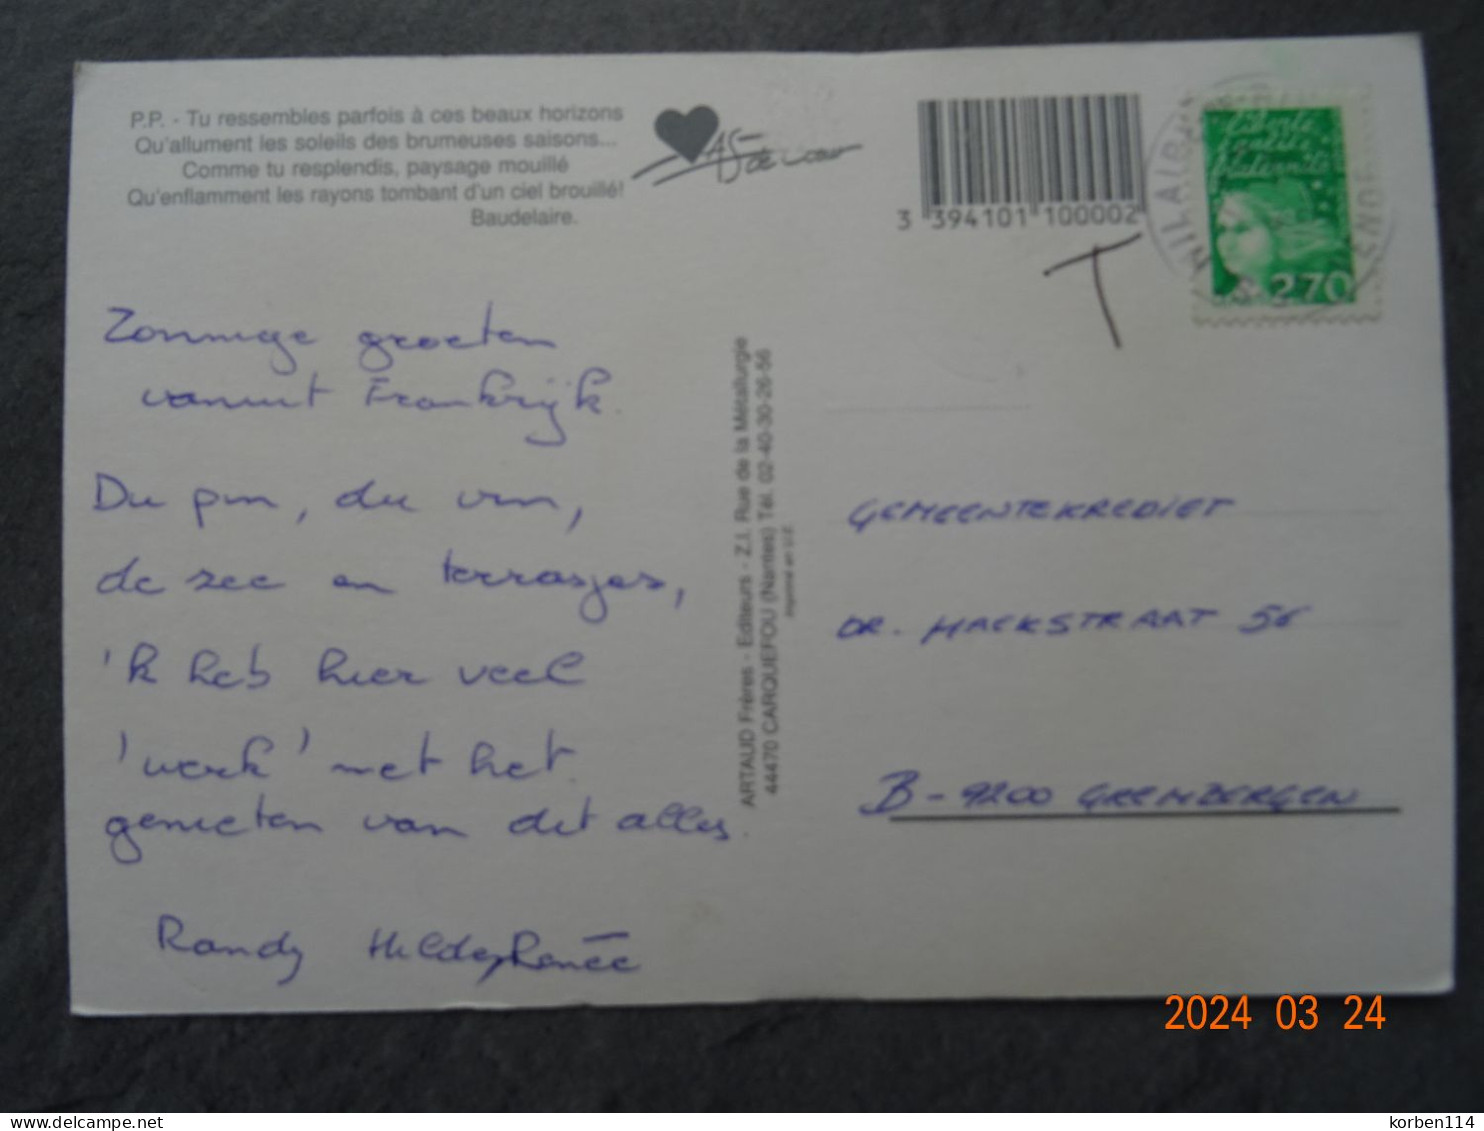 P.P. - Tu ressembles parfois à ces beaux horizons
Qu'allument les soleils des brumeuses saisons...
Comme tu resplendis, paysage mouillé
Qu'enflamment les rayons tombant d'un ciel brouillé!
Baudelaire.
AS de coeur
3 394101 100002
T
2.70
Zonnige groeten
vanuit Frankrijk.
Du pin, du vin,
de zee en terrasjes,
'k heb hier veel
'werk' met het
genieten van dit alles.
Randy Hilde Renée
ARTAUD Frères - Editeurs - Z.I. Rue de la Métallurgie
44470 CARQUEFOU (Nantes) Tél. 02-40-30-26-56
GEMEENTEKREDIET
DR. HAEKSTRAAT 56
B-9200 GREMBERGEN
2024 03 24
delcampe.net
korben114